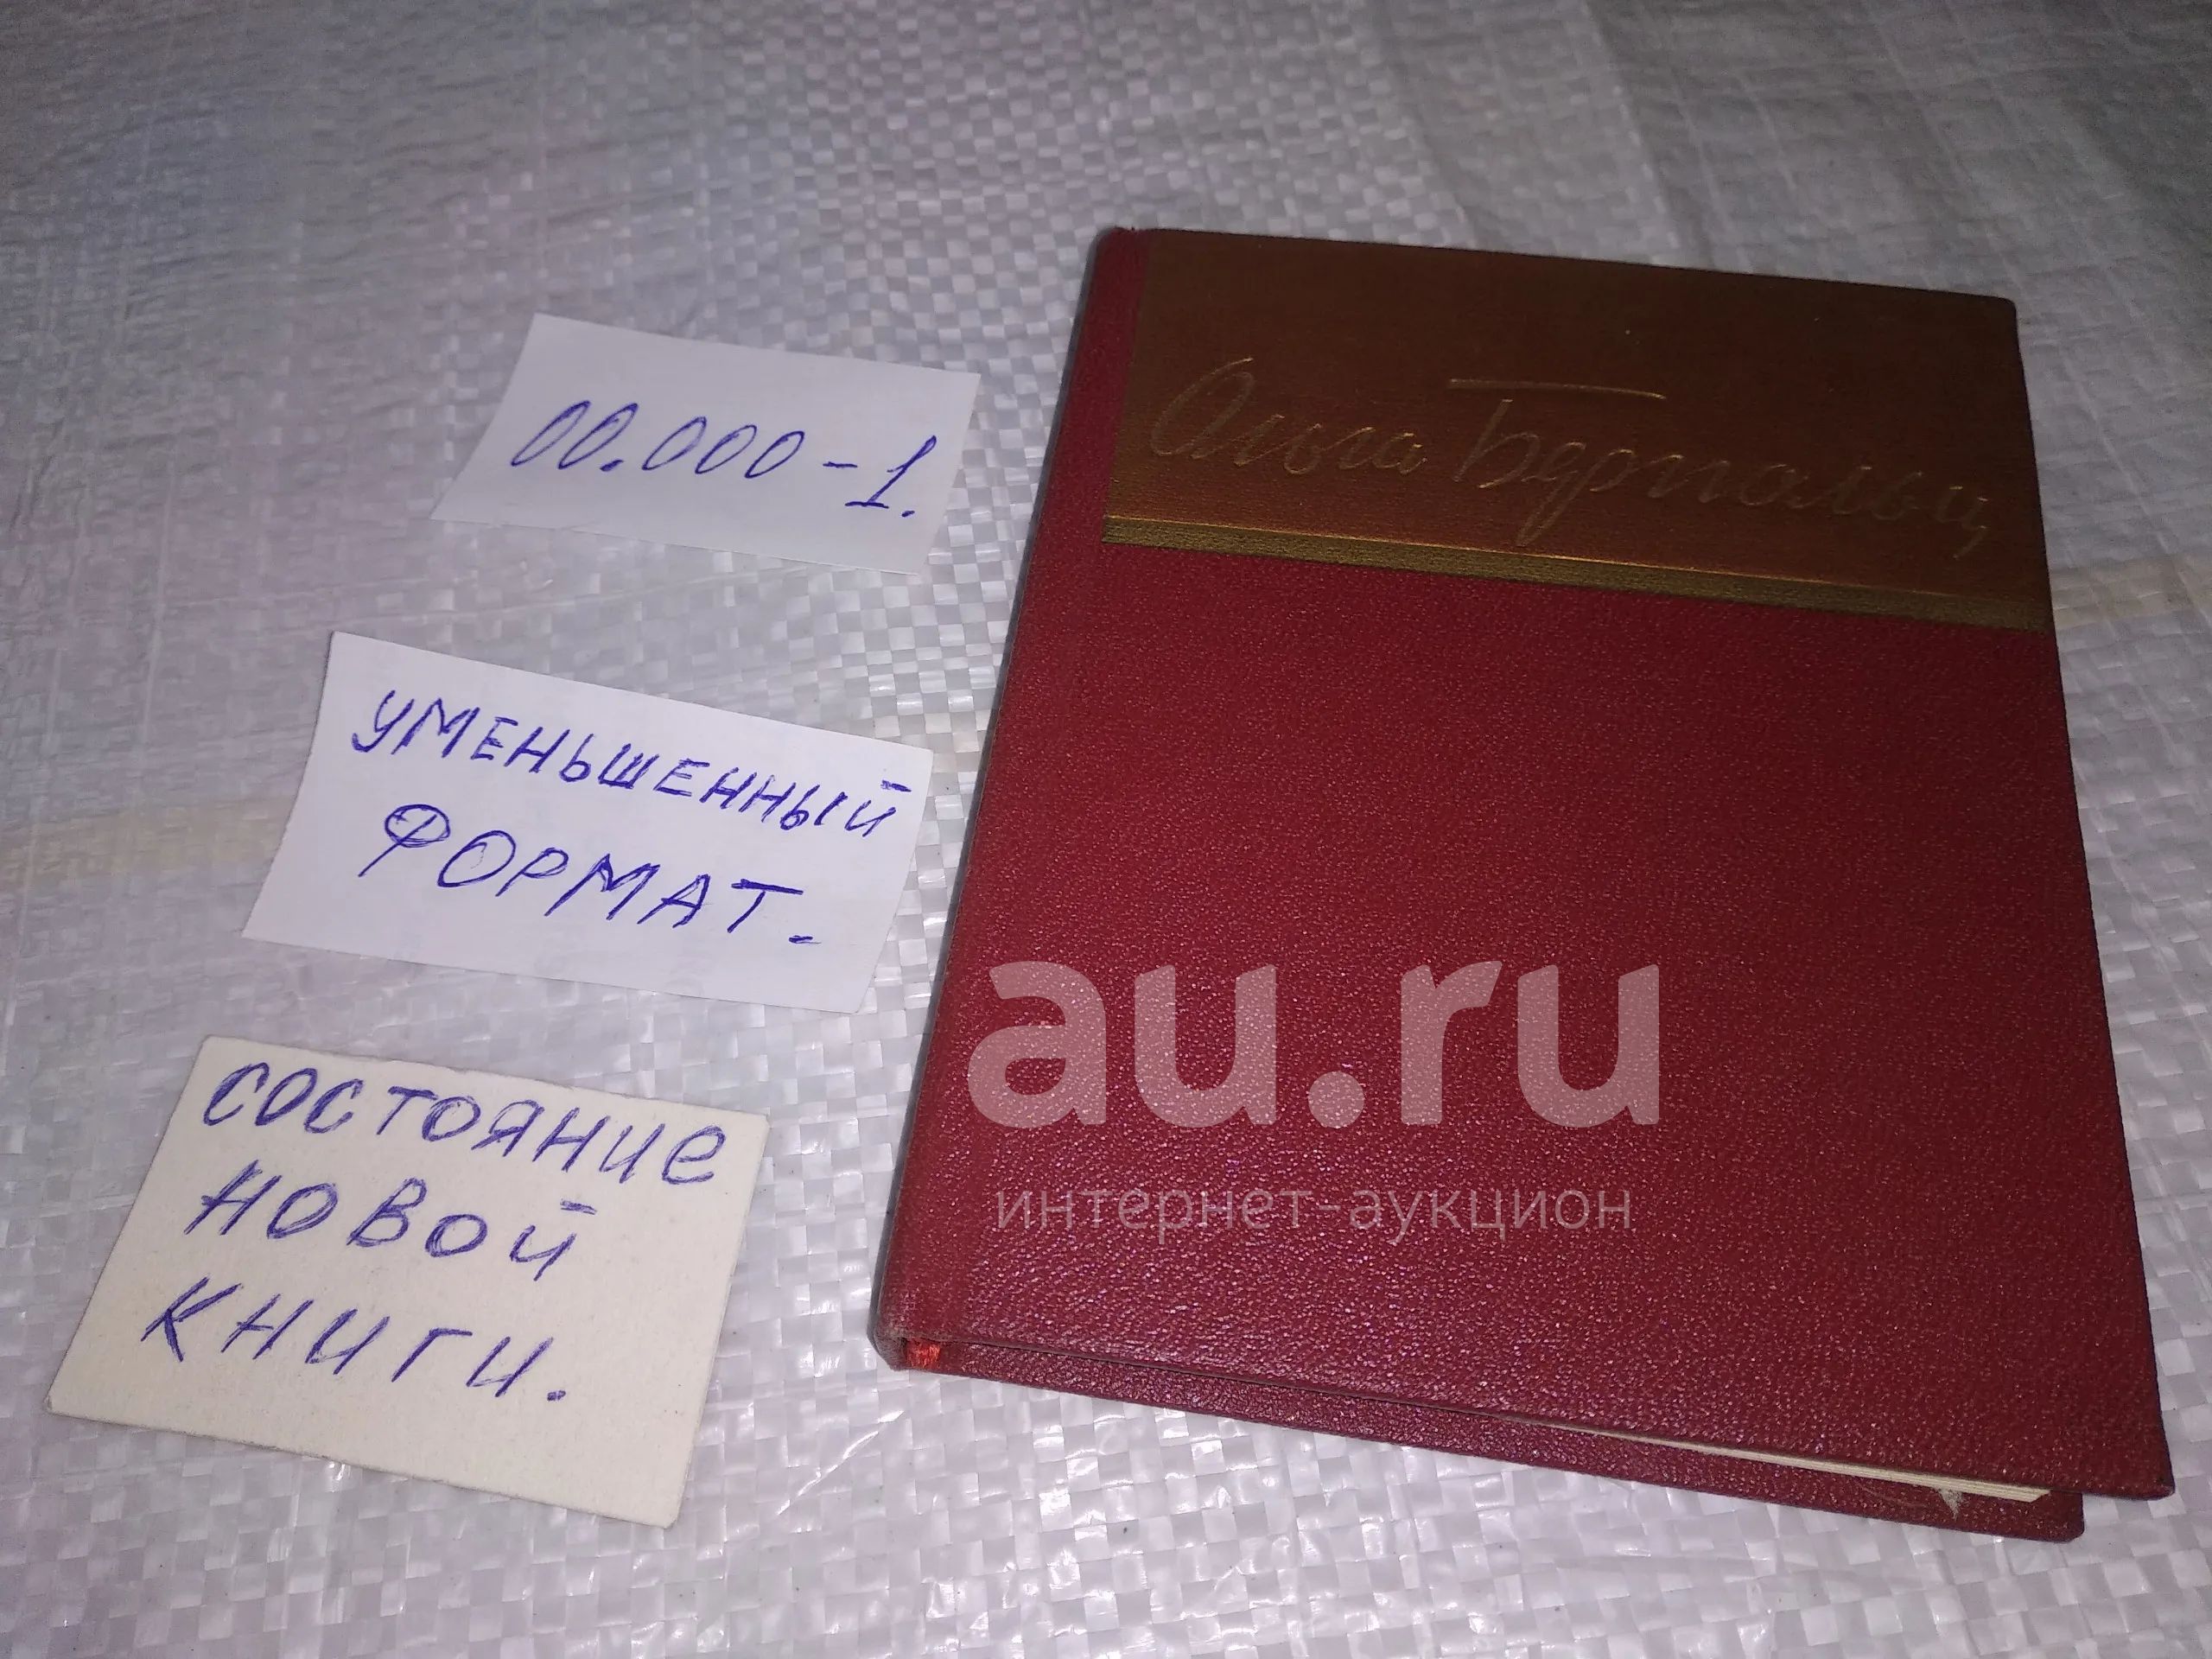 00.000-1.
УМЕНЬШЕННЫЙ
ФОРМАТ.
СОСТОЯНИЕ
НОВОЙ
КНИГИ.
Ольга Берггольц
au.ru
интернет-аукцион